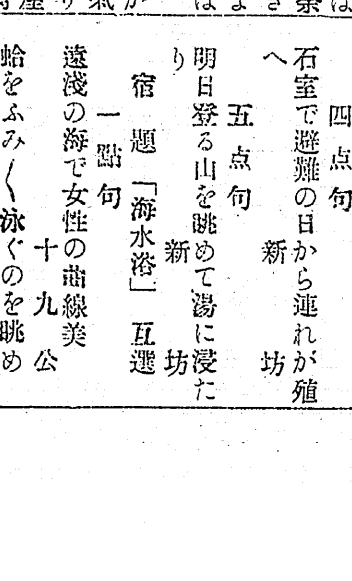 四点句
石室で避難の日から連れが殖
へ
新坊
五点句
明日登る山を眺めて湯に浸た
り
新坊
宿題「海水浴」互選
一點句
遠淺の海で女性の曲線美
十九公
蛤をふみ〱泳ぐのを眺め